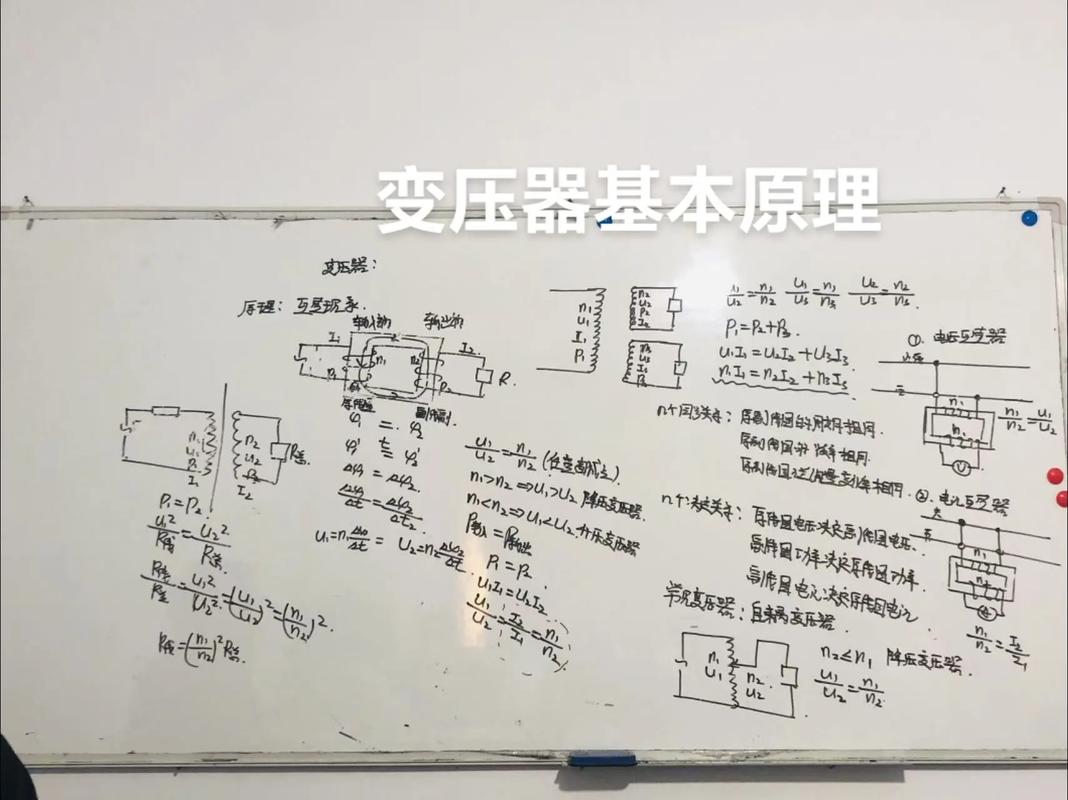 变压器基本原理
变压器：
原理：互感现象.
输入端 输出端
I₁ I₂
n₁ n₂
R.
φ₁ = φ₂
Δφ₁ = Δφ₂
Δφ₁/Δt = Δφ₂/Δt
U₁=n₁Δφ₁/Δt = U₂=n₂Δφ₂/Δt
n₁
U₁
I₁
P₁
n₂
U₂
P₂
I₂
P₁=P₂
U₁²/R等=U₂²/R负
R等/R负=U₁²/U₂²=(U₁/U₂)²=(n₁/n₂)².
R等=(n₁/n₂)²R负
U₁/U₂=n₁/n₂
n₁>n₂⇒U₁>U₂ 降压变压器.
n₁<n₂⇒U₁<U₂ 升压变压器
P输入=P输出
P₁=P₂
U₁I₁=U₂I₂
U₁/U₂=I₂/I₁=n₁/n₂
n₁
U₁
I₁
P₁
n₂
U₂
P₂
I₂
n₃
U₃
I₃
P₃
U₁/U₂=n₁/n₂ U₁/U₃=n₁/n₃ U₂/U₃=n₂/n₃
P₁=P₂+P₃
U₁I₁=U₂I₂+U₃I₃
n₁I₁=n₂I₂+n₃I₃
原副线圈的周期相同.
原副线圈的频率相同.
原副线圈磁通量变化率相同.
原线圈电压决定副线圈电压.
副线圈功率决定原线圈功率.
副线圈电流决定原线圈电流
变压器：自耦变压器.
n₁
U₁
n₂
U₂
n₂≤n₁ 降压变压器.
U₁/U₂=n₁/n₂
①. 电压互感器
火
零
n₁
n₂
V
n₁/n₂=U₁/U₂
②. 电流互感器
火
零
n₁
n₂
A
n₁/n₂=I₂/I₁